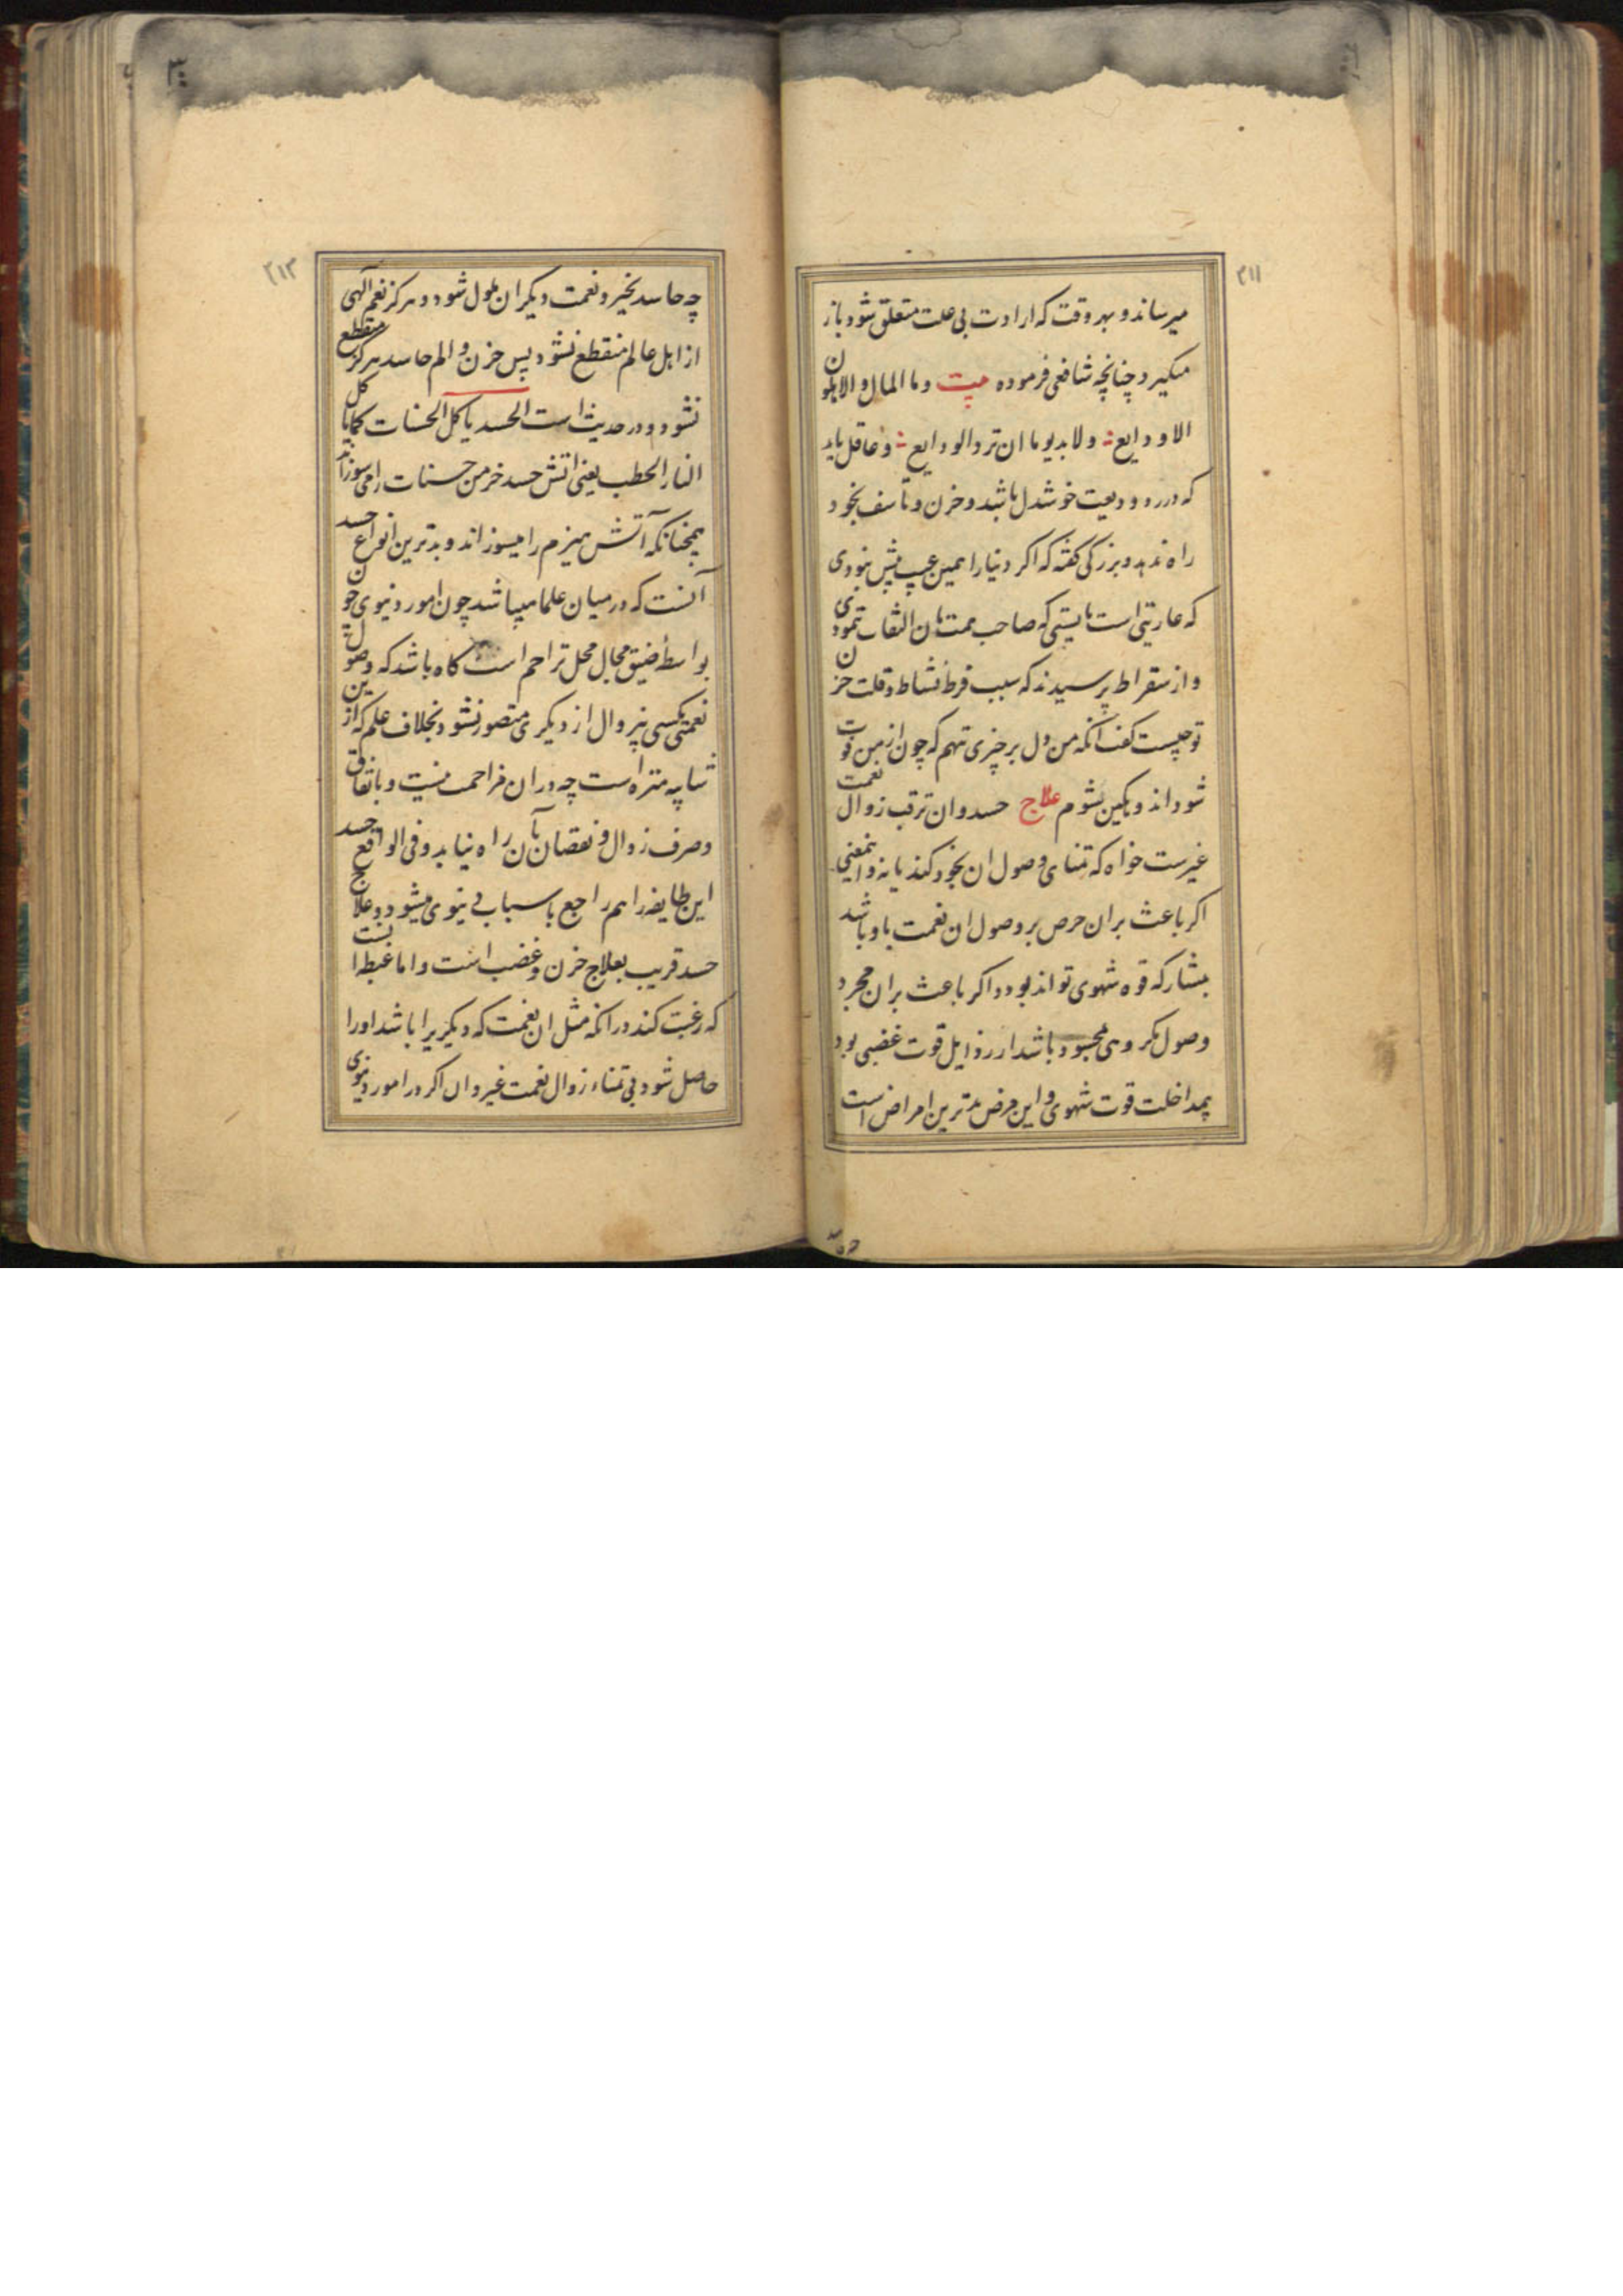 ۲۱۱
میرساند و بهر وقت که ارادت بی علت متعلق شود باز
میکیرد چنانچه شافعی فرموده بیت وما المال والاهلون
الا ودایع ولا بد یوما ان ترد الودایع و عاقل باید
که در رد ودیعت خوشدل باشد و حزن و تاسف بخود
راه ندهد و بزرکی کفته که اکر دنیا را همین عیب بیش نبودی
که عاریتی است بایستی که صاحب همت بان التفات ننمودی
و از سقراط پرسیدند که سبب فرط نشاط و قلت حزن
تو چیست کفت انکه من دل بر چیزی ننهم که چون از من فوت
شود اندوهکین شوم علاج حسد و ان ترقب زوال نعمت
غیرست خواه که تمنای وصول ان بخود کند یا نه و اینمعنی
اکر باعث بران حرص بر وصول ان نعمت باو باشد
بمشارکه قوه شهوی تواند بود و اکر باعث بران مجرد
وصول مکروهی بمحسود باشد از رذایل قوت غضبی بود
بمداخلت قوت شهوی و این مرض بدترین امراض است
۲۱۳
چه حاسد بخیر و نعمت دیکران ملول شود و هرکز نعم آلهی
از اهل عالم منقطع نشود پس حزن و الم حاسد هرکز منقطع
نشود و در حدیث است الحسد یاکل الحسنات کما یاکل
النار الحطب یعنی اتش حسد خرمن حسنات را می سوزاند
همچنانکه آتش هیزم را میسوزاند و بدترین انواع حسد
آنست که در میان علما میباشد چون امور دنیوی چون
بواسطه ضیق مجال محل تزاحم است کاه باشد که وصول
نعمتی بکسی بی زوال از دیکری متصور نشود بخلاف علم که از این
شایبه منزه است چه در ان مزاحمت نیست و بانفاق
و صرف زوال و نقصان بآن راه نیابد و فی الواقع حسد
این طایفه را هم راجع باسباب دنیوی میشود و علاج
حسد قریب بعلاج حزن و غضب است و اما غبطه انست
که رغبت کند در انکه مثل ان نعمت که دیکریرا باشد اورا
حاصل شود بی تمناء زوال نعمت غیر و ان اکر در امور دنیوی